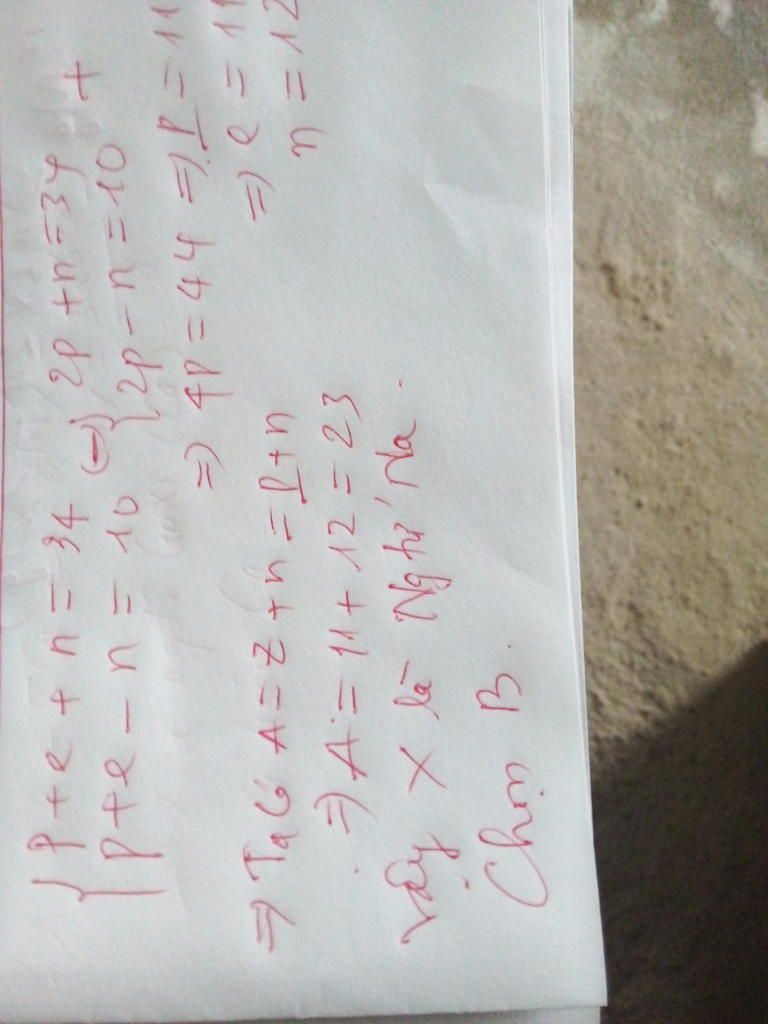 { p + e + n = 34 (=) { 2p + n = 34 +
p + e - n = 10 2p - n = 10
=) 4p = 44 =) p = 11
=) e = 11
n = 12
=) Ta Có A = Z + n = p + n
=) A = 11 + 12 = 23
vậy X là Ngtử Na.
Chọn B.